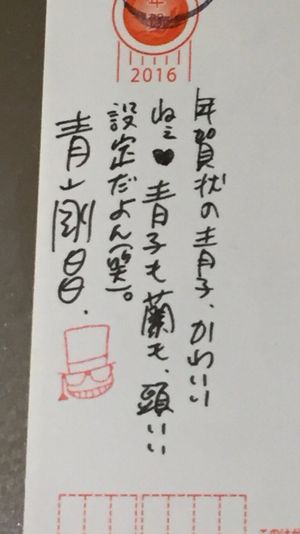 年賀
2016
年賀状の青子、かわいい
ねぇ♥青子も蘭も、頭いい
設定だよん(笑)。
青山剛昌.